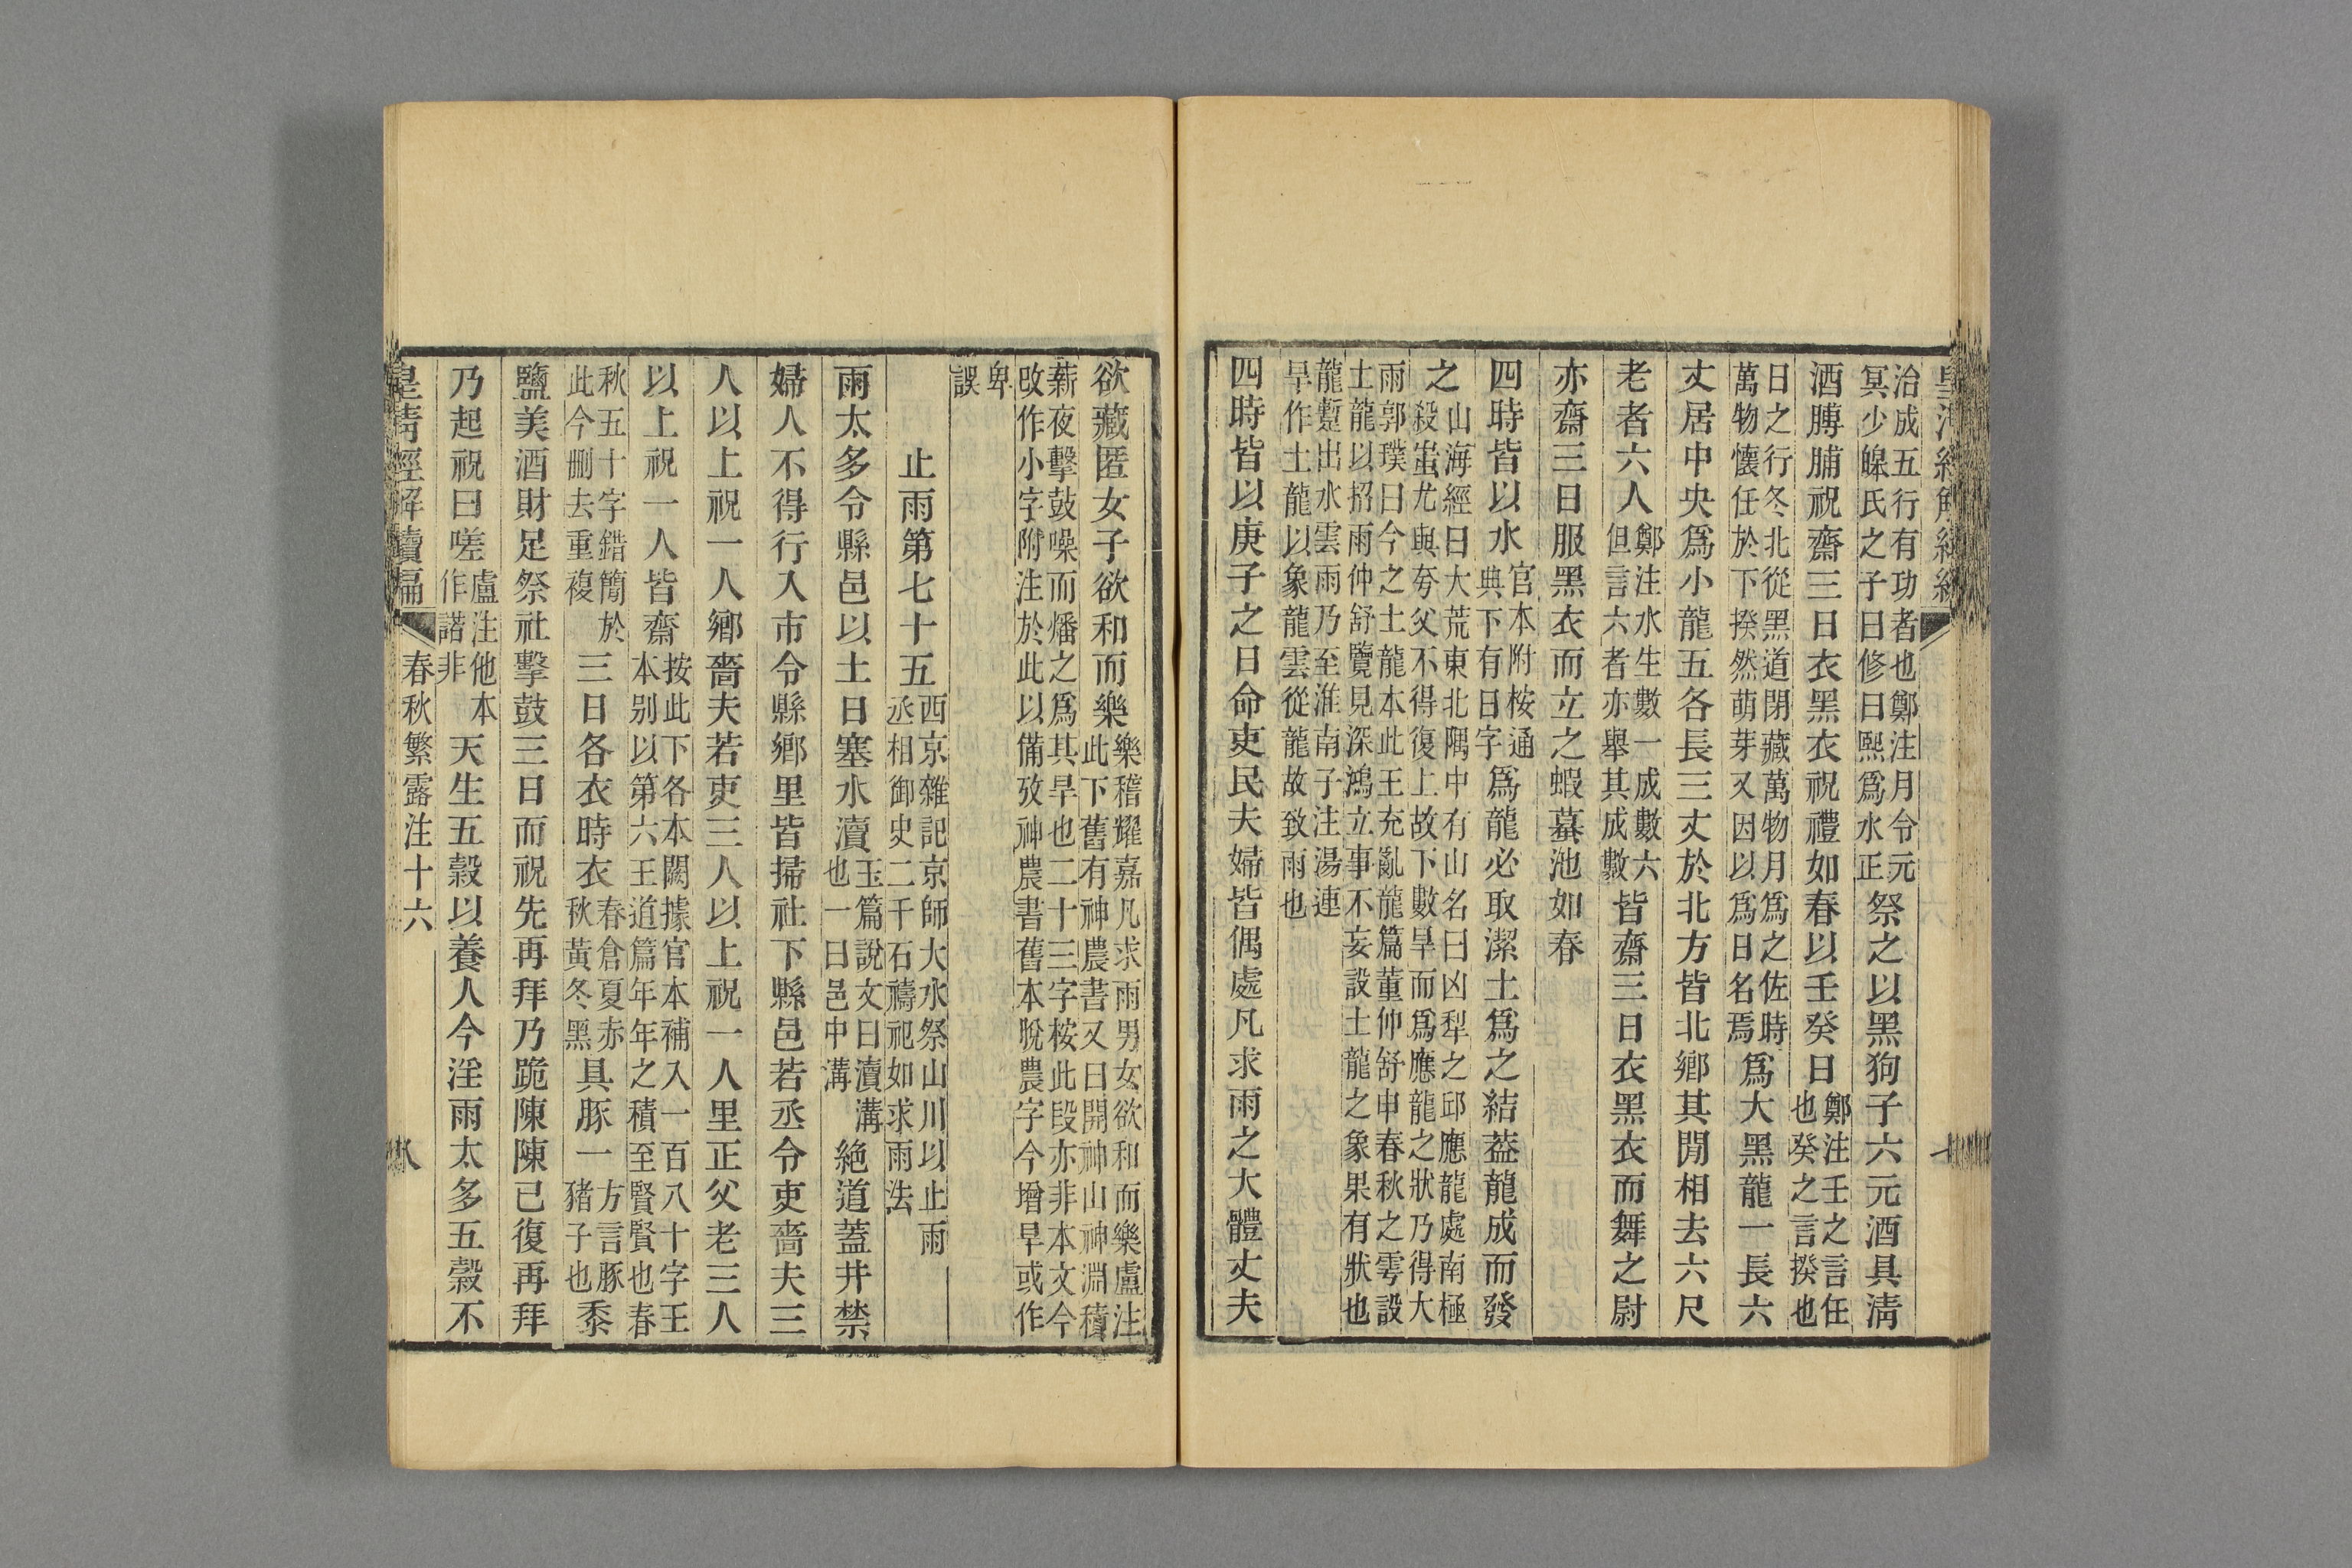 治成五行有功者也鄭注月令元冥少皞氏之子曰修曰熙爲水正祭之以黑狗子六元酒具清
酒膊脯祝齋三日衣黑衣祝禮如春以壬癸日鄭注壬之言任也癸之言揆也
日之行冬北從黑道閉藏萬物月爲之佐時萬物懷任於下揆然萌芽又因以爲日名焉爲大黑龍一長六
丈居中央爲小龍五各長三丈於北方皆北鄉其閒相去六尺
老者六人鄭注水生數一成數六但言六者亦舉其成數皆齋三日衣黑衣而舞之尉
亦齋三日服黑衣而立之蝦蟇池如春
四時皆以水官本附桉通典下有日字爲龍必取潔土爲之結葢龍成而發
之山海經曰大荒東北隅中有山名曰凶犁之邱應龍處南極殺蚩尤與夸父不得復上故下數旱而爲應龍之狀乃得大
雨郭璞曰今之土龍本此王充亂龍篇董仲舒申春秋之雩設土龍以招雨仲舒覽見深鴻立事不妄設土龍之象果有狀也
龍蹔出水雲雨乃至淮南子注湯連旱作土龍以象龍雲從龍故致雨也
四時皆以庚子之日命吏民夫婦皆偶處凡求雨之大體丈夫
欲藏匿女子欲和而樂樂稽耀嘉凡求雨男女欲和而樂盧注此下舊有神農書又曰開神山神淵積
薪夜擊鼓噪而燔之爲其旱也二十三字桉此段亦非本文今改作小字附注於此以備攷神農書舊本脫農字今增旱或作
卑誤
止雨第七十五西京雜記京師大水祭山川以止雨丞相御史二千石禱祀如求雨法
雨太多令縣邑以土日塞水瀆玉篇說文曰瀆溝也一曰邑中溝絶道蓋井禁
婦人不得行入市令縣鄉里皆掃社下縣邑若丞令吏嗇夫三
人以上祝一人鄉嗇夫若吏三人以上祝一人里正父老三人
以上祝一人皆齋按此下各本闕據官本補入一百八十字王本别以第六王道篇年年之積至賢賢也春
秋五十字錯簡於此今删去重複三日各衣時衣春倉夏赤秋黃冬黑具豚一方言豚豬子也黍
鹽美酒財足祭社擊鼓三日而祝先再拜乃跪陳陳已復再拜
乃起祝曰嗟盧注他本作諧非天生五穀以養人今淫雨太多五穀不
皇清經解續編 春秋繁露注十六 八